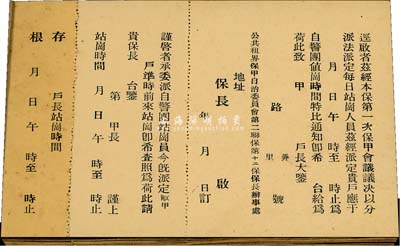 逕啟者茲經本保第一次保甲會議議决以分
派法派定每日站崗人員茲經派定貴戶應于
月 日 午 時至 時止爲
自警團值崗時間特此通知即希 台給爲
荷此致
戶長大鑒
甲 路 里 弄 號
公共租界保甲自治委員會第二聯保第十二保保長辦事處
地址
保長 啟
年 月 日訂
謹啓者承委派自警團站崗員今既派定 甲
戶準時前來站崗即希查照爲荷此請
貴保長 台鑒
第 甲長 謹上
站崗時間 月 日 午 時至 時止
存 戶長站崗時間
根 月 日 午 時至 時止